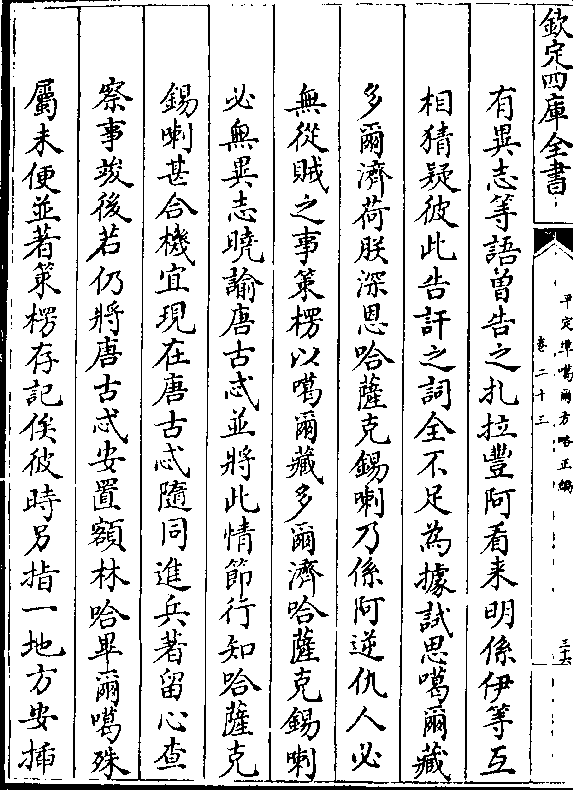 欽定四庫全書
平定準噶爾方略正編
卷二十三
三十六
有異志等語曽告之扎拉豐阿看来明係伊等互
相猜疑彼此告訐之詞全不足為據試思噶爾藏
多爾濟荷朕深恩哈薩克錫喇乃係阿逆仇人必
無從賊之事策楞以噶爾藏多爾濟哈薩克錫喇
必無異志曉諭唐古忒並將此情節行知哈薩克
錫喇甚合機宜現在唐古忒隨同進兵著留心查
察事竣後若仍將唐古忒安置額林哈畢爾噶殊
屬未便並著策楞存記俟彼時另指一地方安插